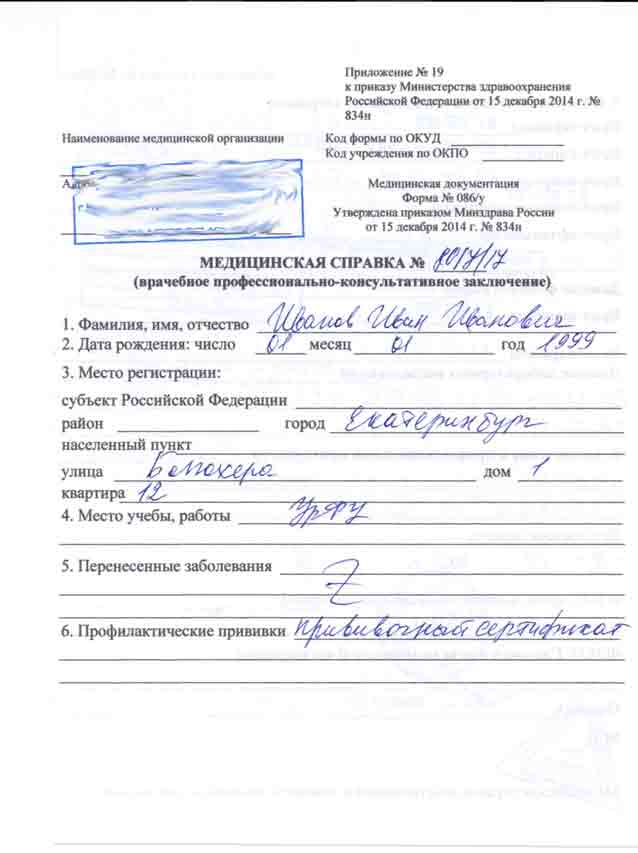 Приложение № 19
к приказу Министерства здравоохранения
Российской Федерации от 15 декабря 2014 г. №
834н
Наименование медицинской организации
Код формы по ОКУД
Код учреждения по ОКПО
Адрес
Медицинская документация
Форма № 086/у
Утверждена приказом Минздрава России
от 15 декабря 2014 г. № 834н
МЕДИЦИНСКАЯ СПРАВКА №
(врачебное профессионально-консультативное заключение)
1. Фамилия, имя, отчество Иванов Иван Иванович
2. Дата рождения: число 01 месяц 01 год 1999
3. Место регистрации:
субъект Российской Федерации
район город Екатеринбург
населенный пункт
улица дом 1
квартира 12
4. Место учебы, работы УрФУ
5. Перенесенные заболевания
6. Профилактические прививки прививочный сертификат